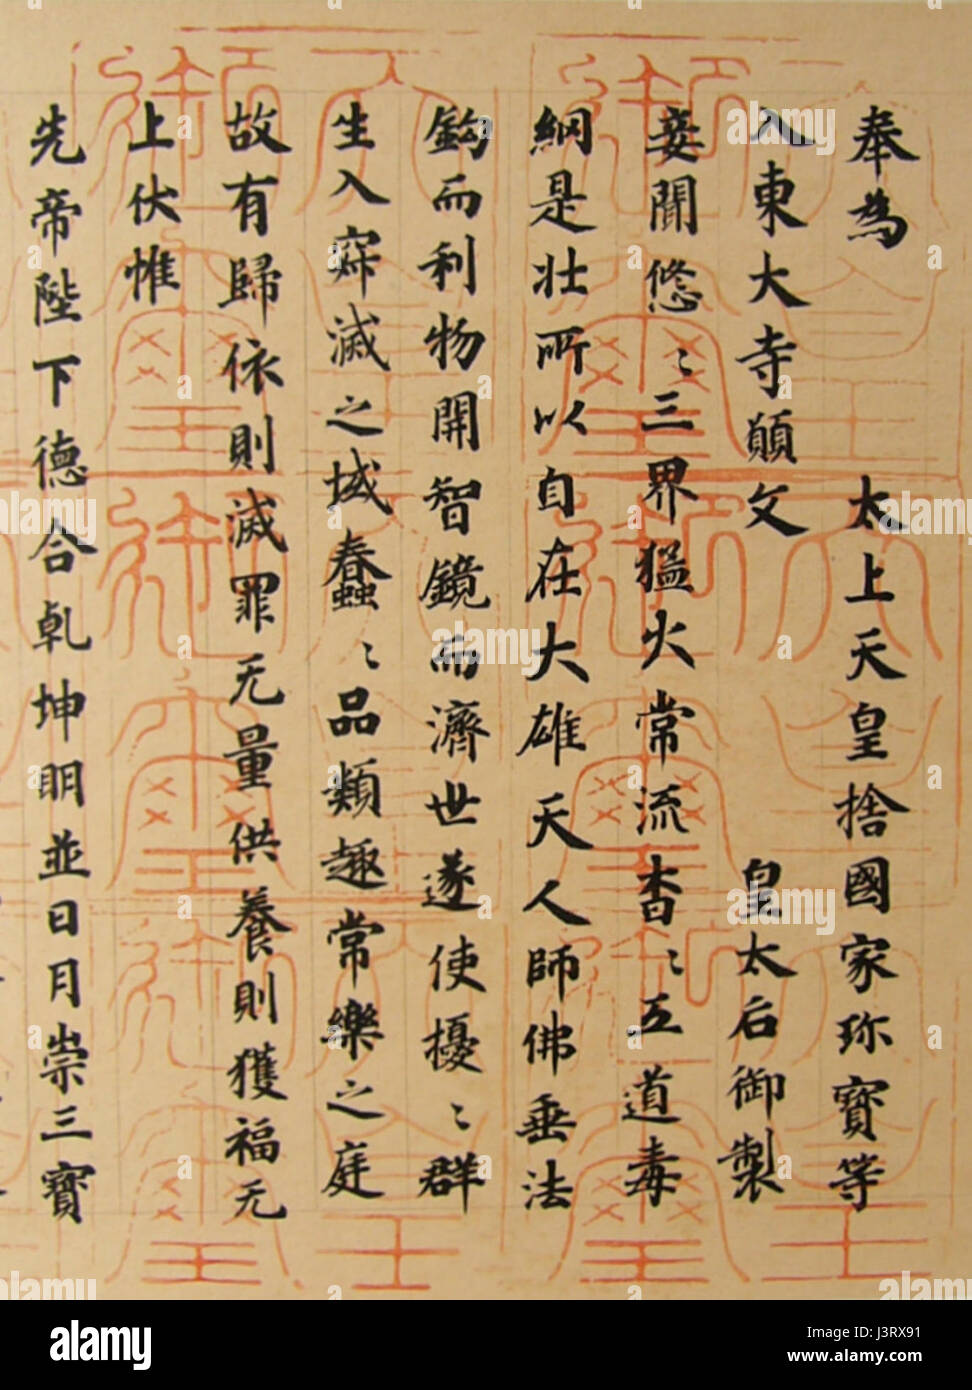 奉為 太上天皇捨國家珎寶等
入東大寺願文 皇太后御製
妾聞悠〻三界猛火常流杳〻五道毒
網是壯所以自在大雄天人師佛垂法
鈎而利物開智鏡而濟世遂使擾〻群
生入寂滅之域蠢〻品類趣常樂之庭
故有歸依則滅罪无量供養則獲福无
上伏惟
先帝陛下德合乹坤明並日月崇三寶
alamy
Image ID: J3RX91
www.alamy.com